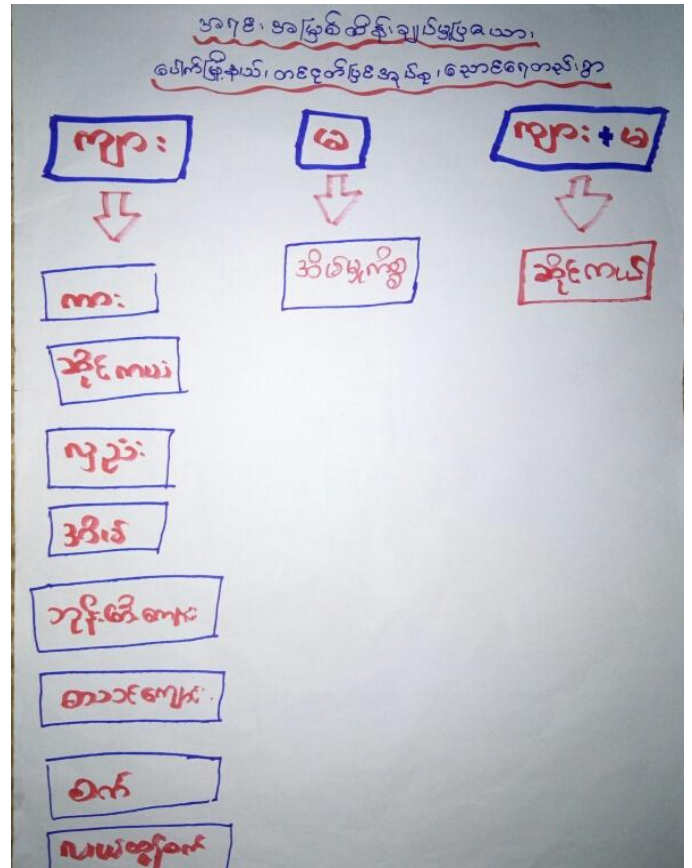 အရင်းအမြစ်ထိန်းချုပ်မှုပြဇယား
ပေါက်မြို့နယ်၊ တငငုတ်မြင်အုပ်စု၊ ညောင်ရေတည်းရွာ
ကျား မ ကျား + မ
ကား အိမ်မှုကိစ္စ ဆိုင်ကယ်
ဆိုင်ကယ်
လှည်း
အိမ်
ဘုန်းကြီးကျောင်း
စာသင်ကျောင်း
စက်
လယ်ထွန်စက်